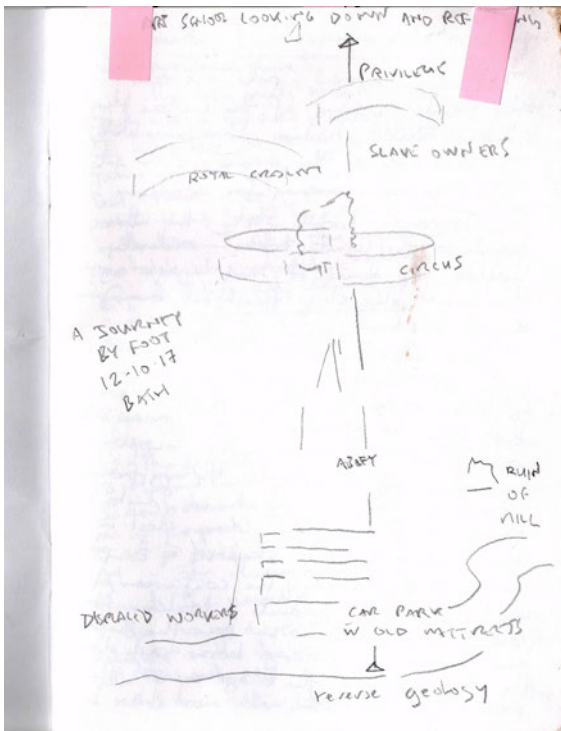 ART SCHOOL LOOKING DOWN AND
PRIVILEGE
SLAVE OWNERS
ROYAL CRESCENT
CIRCUS
A JOURNEY
BY FOOT
12-10-17
BATH
ABBEY
RUIN
OF
MILL
DISPLACED WORKERS
CAR PARK
W OLD MATTRESS
reverse geology